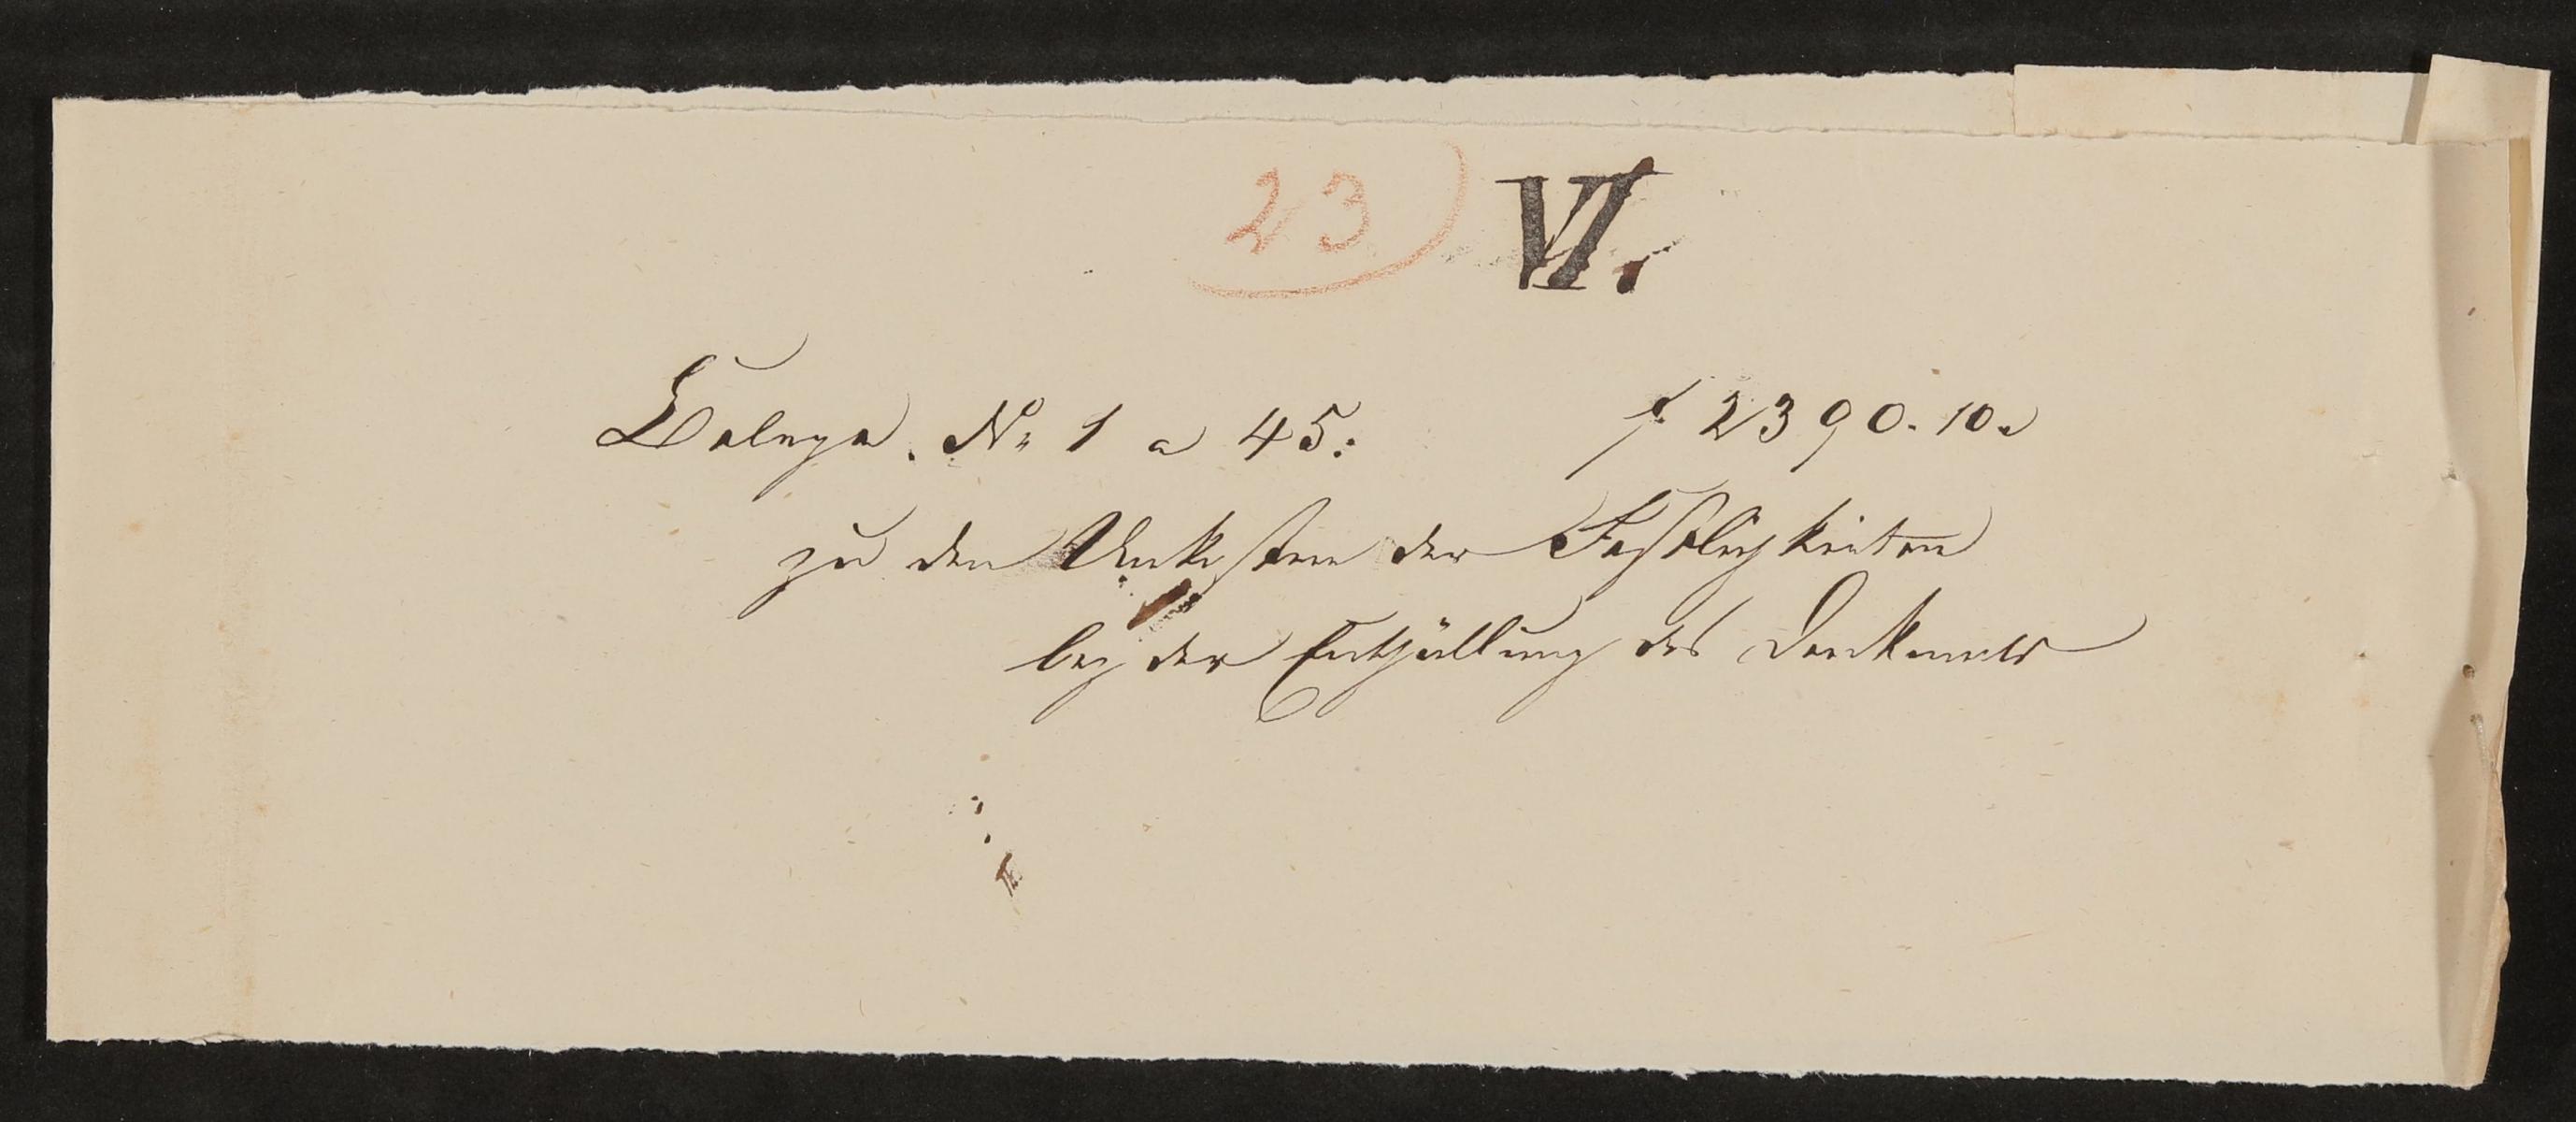 23 VI.
Belege. No 1 a 45: f 2390. 10.
zu den Unkosten der Festlichkeiten
bey der Enthüllung des Denkmals